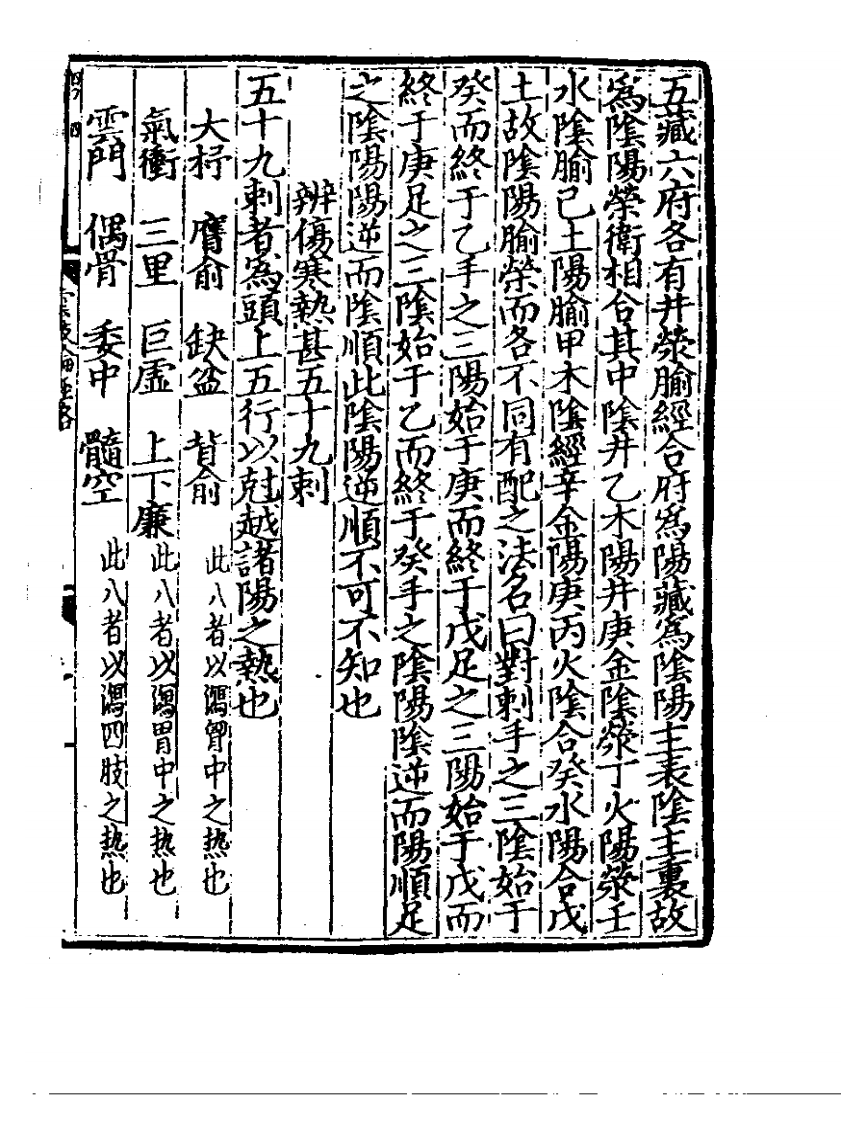 五藏六府各有井滎腧經合府爲陽藏爲陰陽主表陰主裏故
爲陰陽榮衛相合其中陰井乙木陽井庚金陰滎丁火陽滎壬
水陰腧己土陽腧甲木陰經辛金陽庚丙火陰合癸水陽合戊
土故陰陽腧榮而各不同有配之法名曰對刺手之三陰始于
癸而終于乙手之三陽始于庚而終于戊足之三陽始于戊而
終于庚足之三陰始于乙而終于癸手之陰陽陰逆而陽順足
之陰陽陽逆而陰順此陰陽逆順不可不知也
辨傷寒熱甚五十九刺
五十九刺者爲頭上五行以尅越諸陽之熱也
大杼 膺俞 缺盆 背俞 此八者以瀉胷中之热也
氣衝 三里 巨虛 上下廉 此八者以瀉胃中之热也
雲門 偶骨 委中 髓空 此八者以瀉四肢之热也